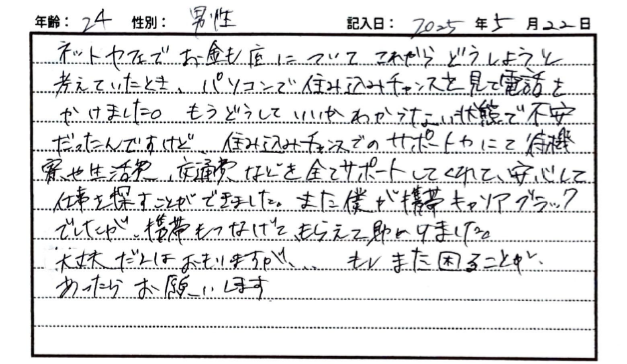 年齢: 24 性別: 男性 記入日: 2025年5月22日
ネットカフェでお金も底についてこれからどうしようと
考えていたとき、パソコンで住み込みチャンスを見て電話を
かけました。もうどうしていいかわからない状態で不安
だったんですけど、住み込みチャンスでのサポートかにて待機
寮や生活費、交通費などを全てサポートしてくれて、安心して
仕事を探すことができました。また僕が携帯キャリアブラック
でしたが、携帯もつなげてもらえて助かりました。
大丈夫だとはおもいますが、... もしまた困ることが、
あったらお願いします